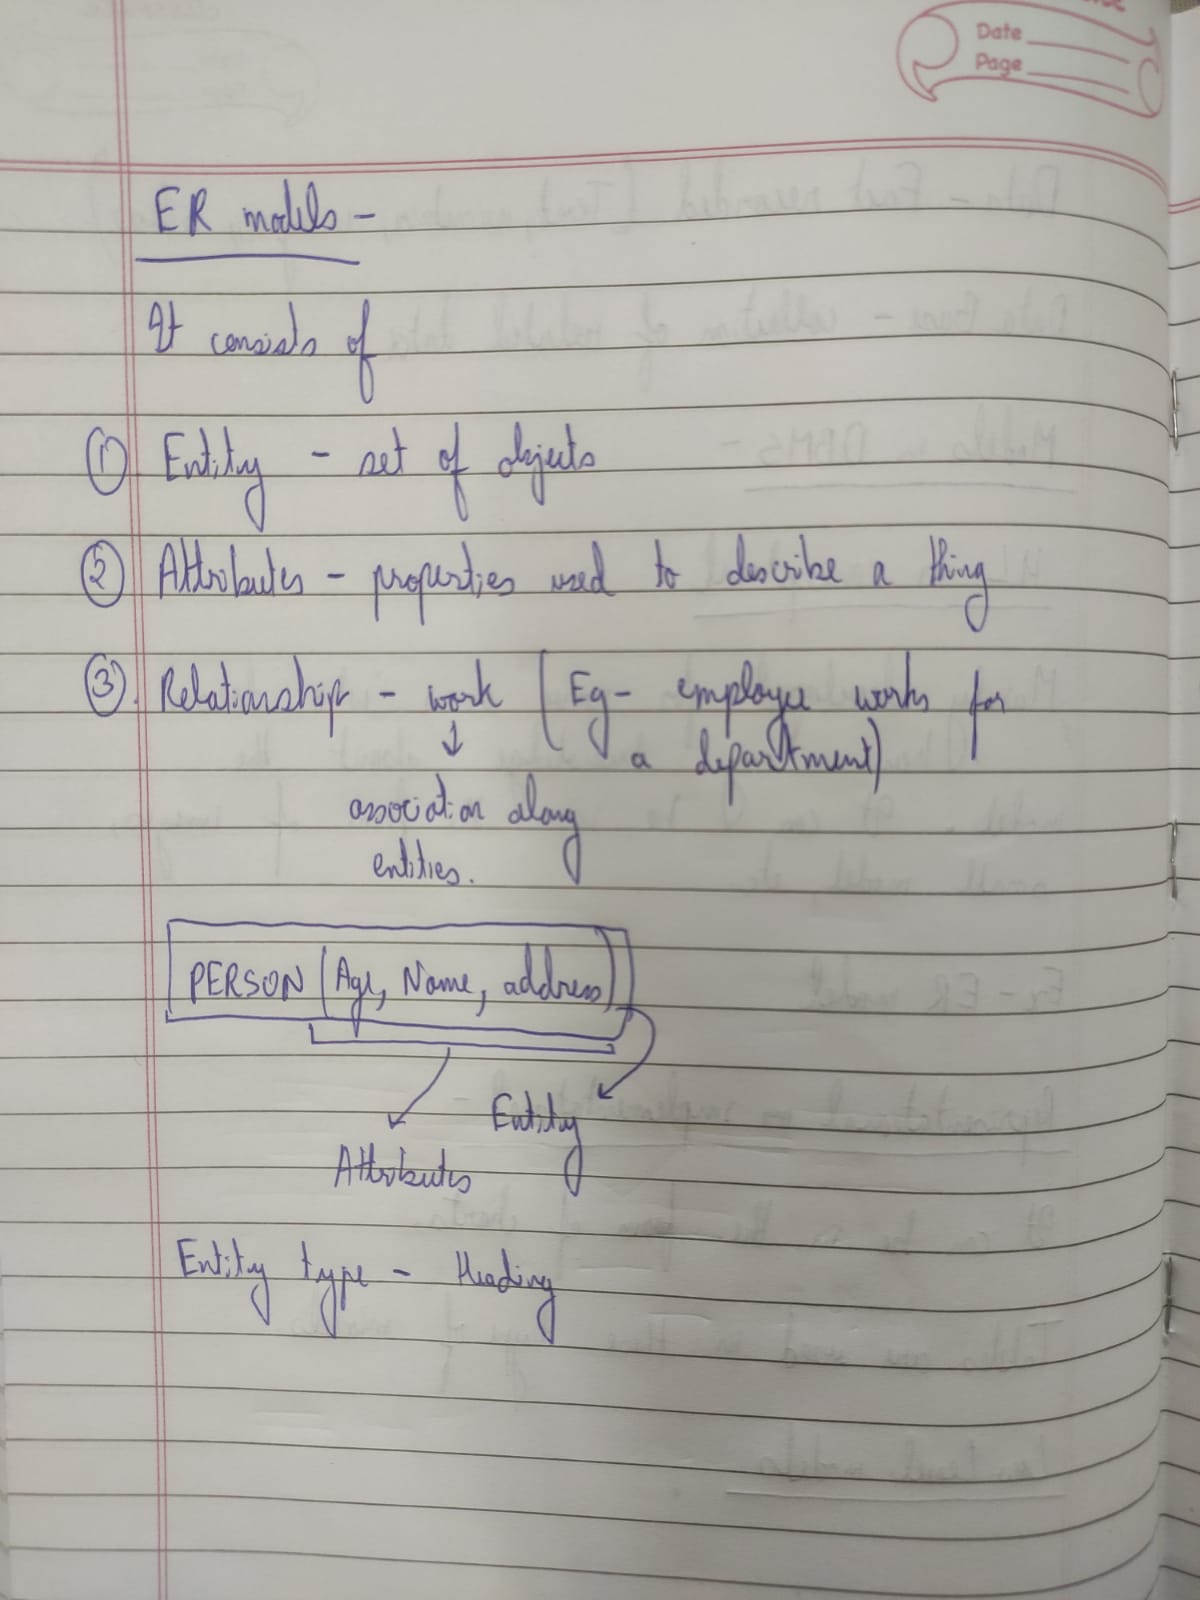 Date
Page
ER models -
It consists of
① Entity - set of objects
② Attributes - properties used to describe a thing
③. Relationship - work (Eg- employee works for
a department)
↓
association along
entities.
PERSON (Age, Name, address)
Entity
Attributes
Entity type - Heading